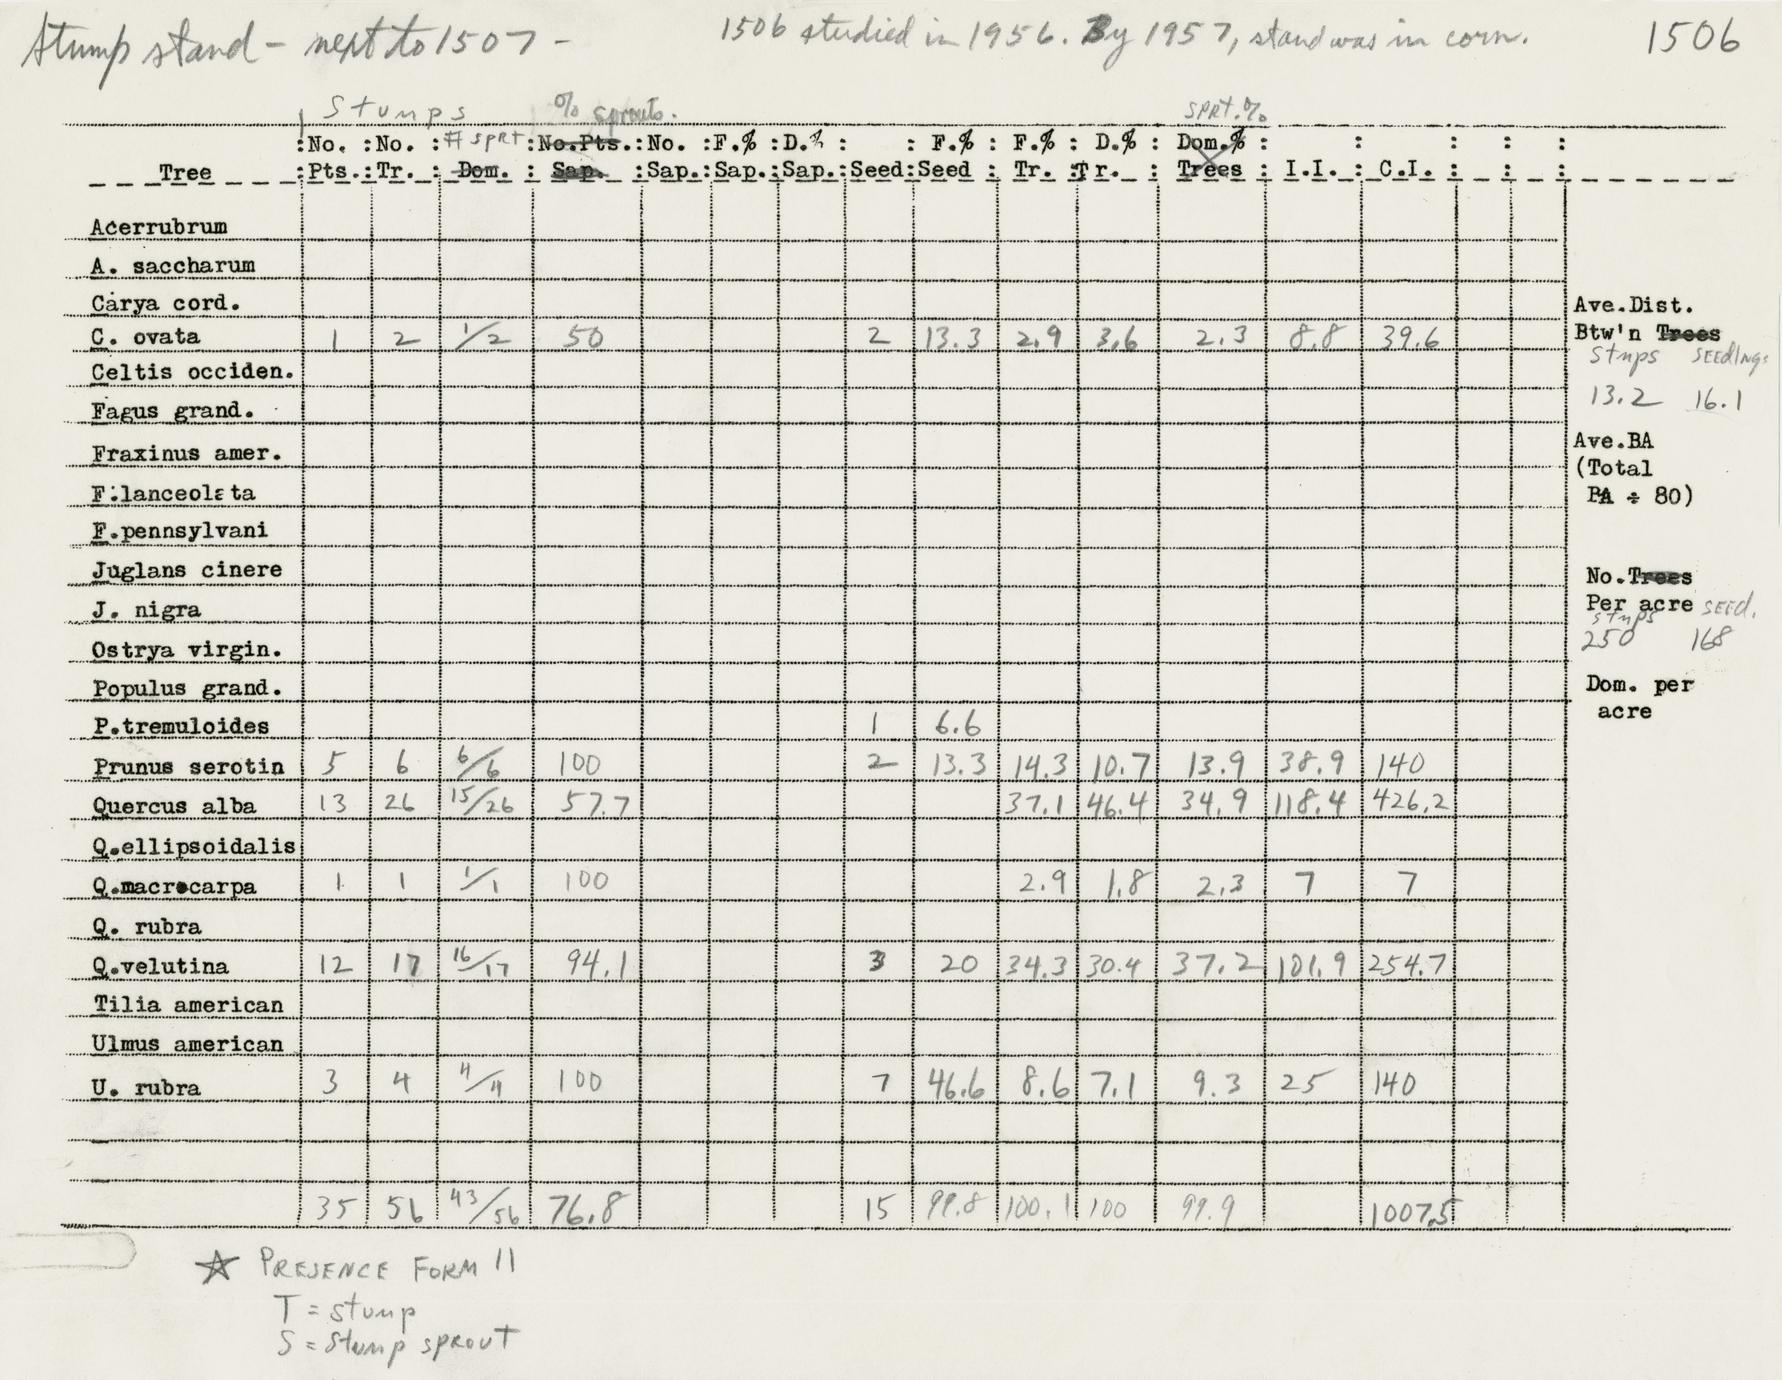 Stump stand - next to 1507 -
1506 studied in 1956. By 1957, stand was in corn.
1506
Stumps % sprouts. SPRT.%
:No. :No. :# SPRT:No.Pts.:No. :F.% :D.% : : F.% : F.% : D.% : Dom.% : : : : :
Tree :Pts.:Tr. : Dom. : Sap. :Sap.:Sap.:Sap.:Seed:Seed : Tr. :Tr. : Trees : I.I. : C.I. : : :
Acerrubrum
A. saccharum
Carya cord.
C. ovata 1 2 1/2 50 2 13.3 2.9 3.6 2.3 8.8 39.6
Celtis occiden.
Fagus grand.
Fraxinus amer.
F.lanceolata
F.pennsylvani
Juglans cinere
J. nigra
Ostrya virgin.
Populus grand.
P.tremuloides 1 6.6
Prunus serotin 5 6 6/6 100 2 13.3 14.3 10.7 13.9 38.9 140
Quercus alba 13 26 15/26 57.7 37.1 46.4 34.9 118.4 426.2
Q.ellipsoidalis
Q.macrocarpa 1 1 1/1 100 2.9 1.8 2.3 7 7
Q. rubra
Q.velutina 12 17 16/17 94.1 3 20 34.3 30.4 37.2 101.9 254.7
Tilia american
Ulmus american
U. rubra 3 4 4/4 100 7 46.6 8.6 7.1 9.3 25 140
35 56 43/56 76.8 15 99.8 100.1 100 99.9 1007.5
Ave.Dist.
Btw'n Trees
Stmps SEEdlngs
13.2 16.1
Ave.BA
(Total
BA ÷ 80)
No.Trees
Per acre SEEd.
stmps
250 168
Dom. per
acre
☆ PRESENCE FORM 11
T = stump
S = Stump SPROUT